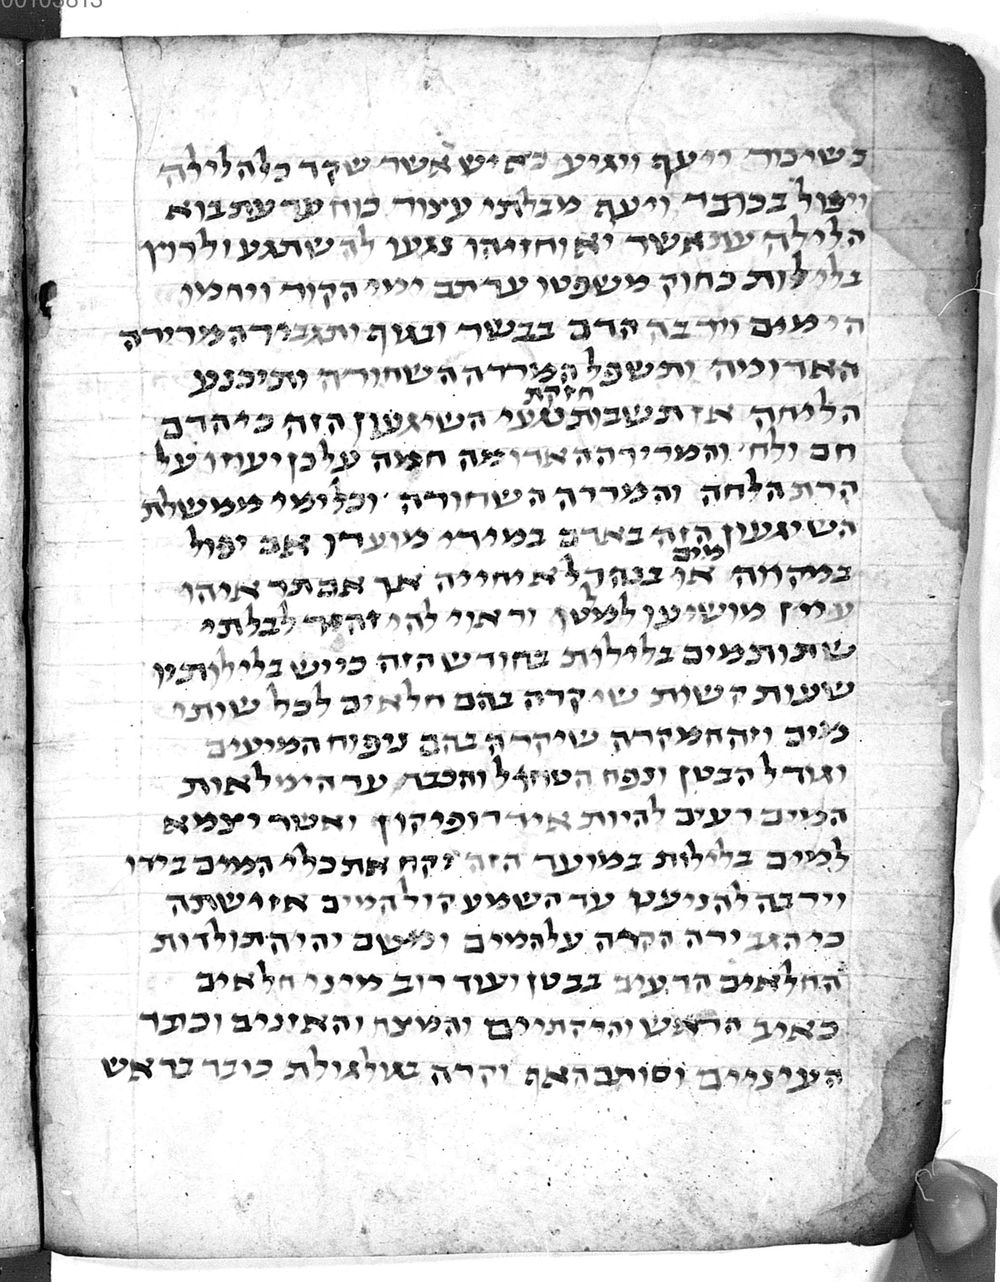 00105813
כשיכור וייעף וייגיע כאיש אשר שקד כל הלילה
ויפול בכובד ויעף מבלתי עצור כוח עד עת בוא
הלילה עת אשר יאוחזיהו נגעו להשתגע ולרוץ
בלילות כחוק משפטו עד תם ימי הקור ויחמו
הימים וירבה הדם בבשר ובגוף ותגבור המרירה
האדומה ותשפל המררה השחורה ותיכנע
חזקת
הליחה אז תשבות געי השיגעון הזה כי הדם
חם ולח והמרירה האדומה חמה על כן יעוזו על
קרת הלחה והמררה השחורה וכל ימי ממשלת
השיגעון הזה באדם במורי מועדו אם יפול
מים
במקוה או בנהר לא יחייה אך אם תראיהו
עיין מושיעו למלטו וראוי להיזהר לבלתי
שתות מים בלילות בחודש הזה כי יש בלילותיו
שעות קשות שיקרה בהם חלאים לכל שותי
מים וזה המקרה שיקרה בהם ניפוח המיעים
וגודל הבטן ונפח הטחול והכבד עד הימלאות
המים רעים להיות אידרופיקון ואשר יצמא
למים בלילות במועד הזה יקח את כלי המים בידו
וירבה להניעט עד השמע קול המים אז ישתה
כי הגבירה הקרה על המים ומשם יהיה תולדות
החלאים הרעים בבטן ועוד רוב מיני חלאים
כאיב הראש והרקתיים והמצח והאזנים וכובד
העיניים וסותם האף וקרה בגולגולת כובד בראש